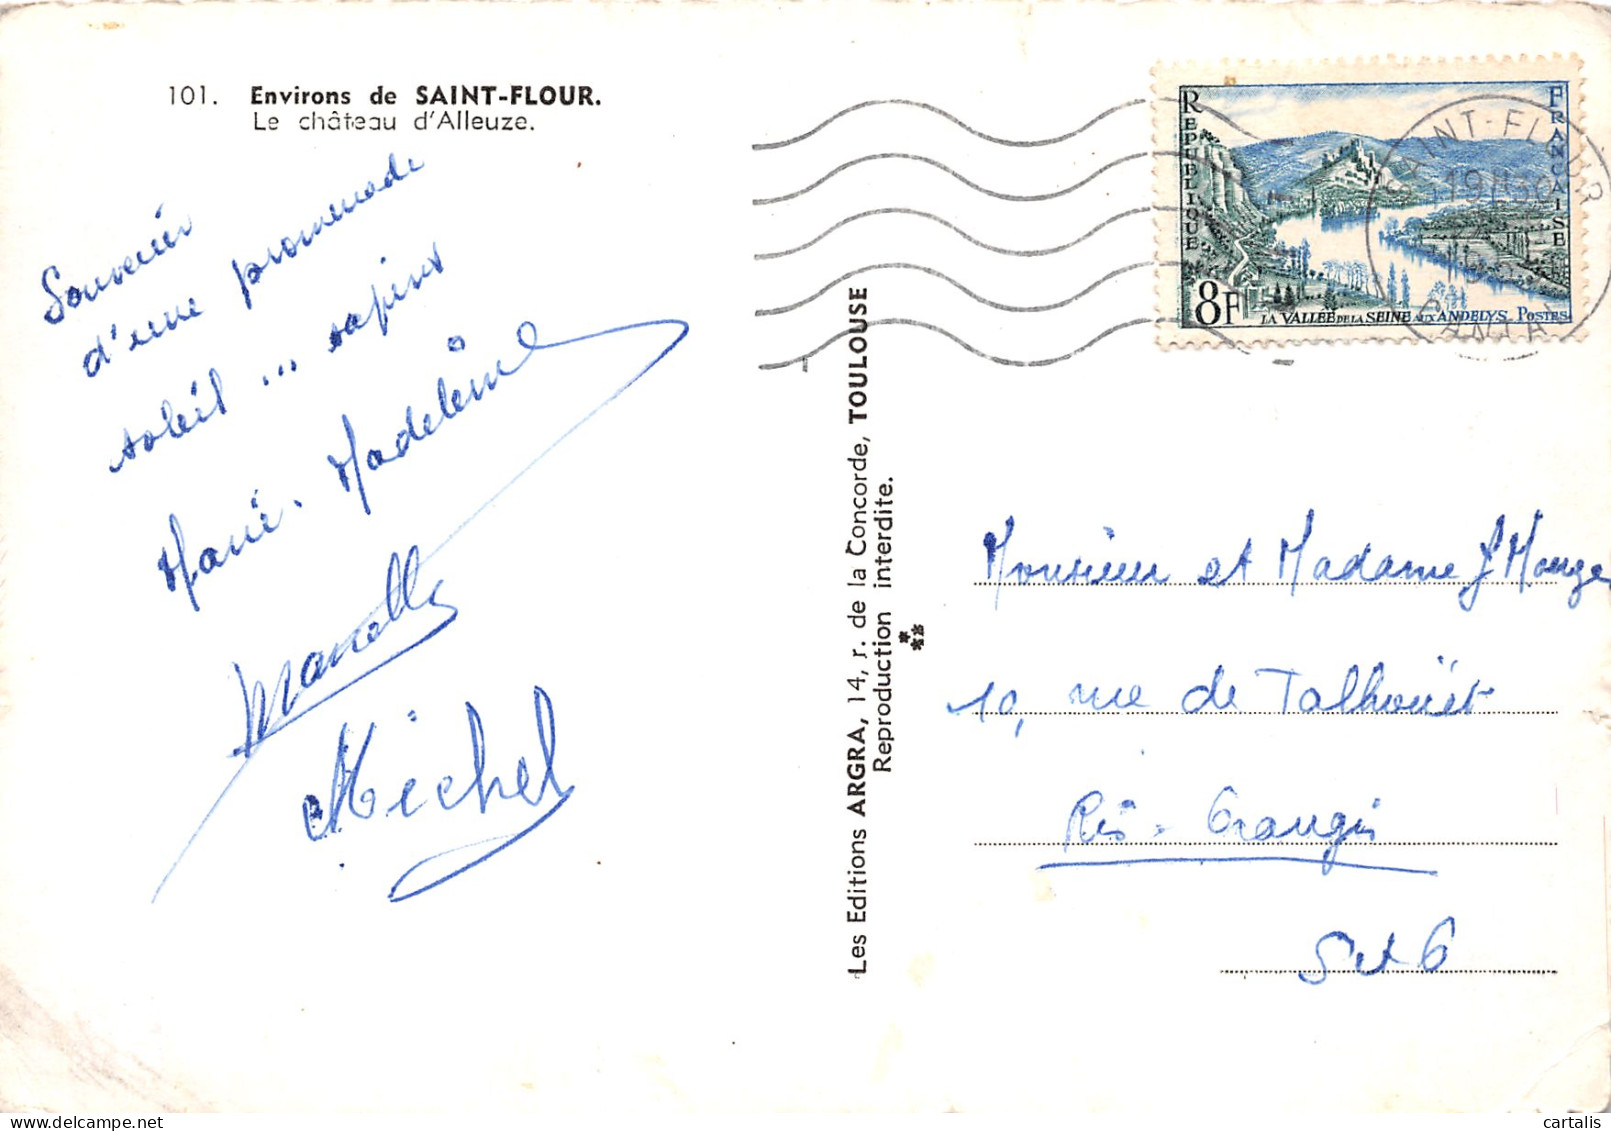 101. Environs de SAINT-FLOUR.
Le château d'Alleuze.
Souvenir
d'une promenade
soleil ... sapins
Marie-Madeleine
Michel
Les Editions ARGRA, 14, r. de la Concorde, TOULOUSE
Reproduction interdite.
REPUBLIQUE
FRANCAISE
8F
LA VALLÉE DE LA SEINE AUX ANDELYS. POSTES
SAINT-FLOUR
19H30
CANTAL
Monsieur et Madame J Mouge
10, rue de Talhouët
Ris-Orangis
S et O
cartalis